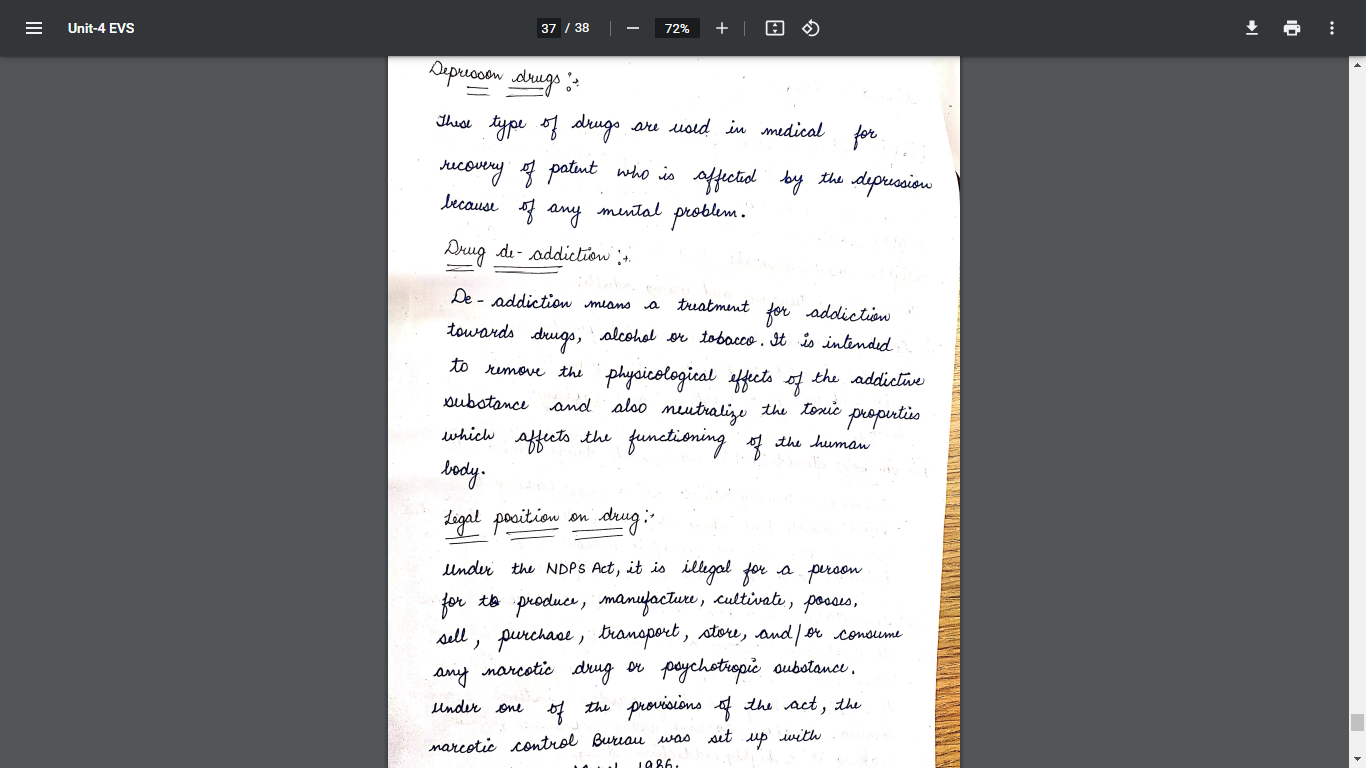 Unit-4 EVS
37 / 38
72%
Depresson drugs :-
These type of drugs are used in medical for
recovery of patent who is affected by the depression
because of any mental problem.
Drug de-addiction :-
De-addiction means a treatment for addiction
towards drugs, alcohol or tobacco. It is intended
to remove the physicological effects of the addictive
substance and also neutralize the toxic properties
which affects the functioning of the human
body.
Legal position on drug :-
Under the NDPS Act, it is illegal for a person
for to produce, manufacture, cultivate, posses,
sell, purchase, transport, store, and/or consume
any narcotic drug or psychotropic substance.
Under one of the provisions of the act, the
narcotic control Bureau was set up with
1986.